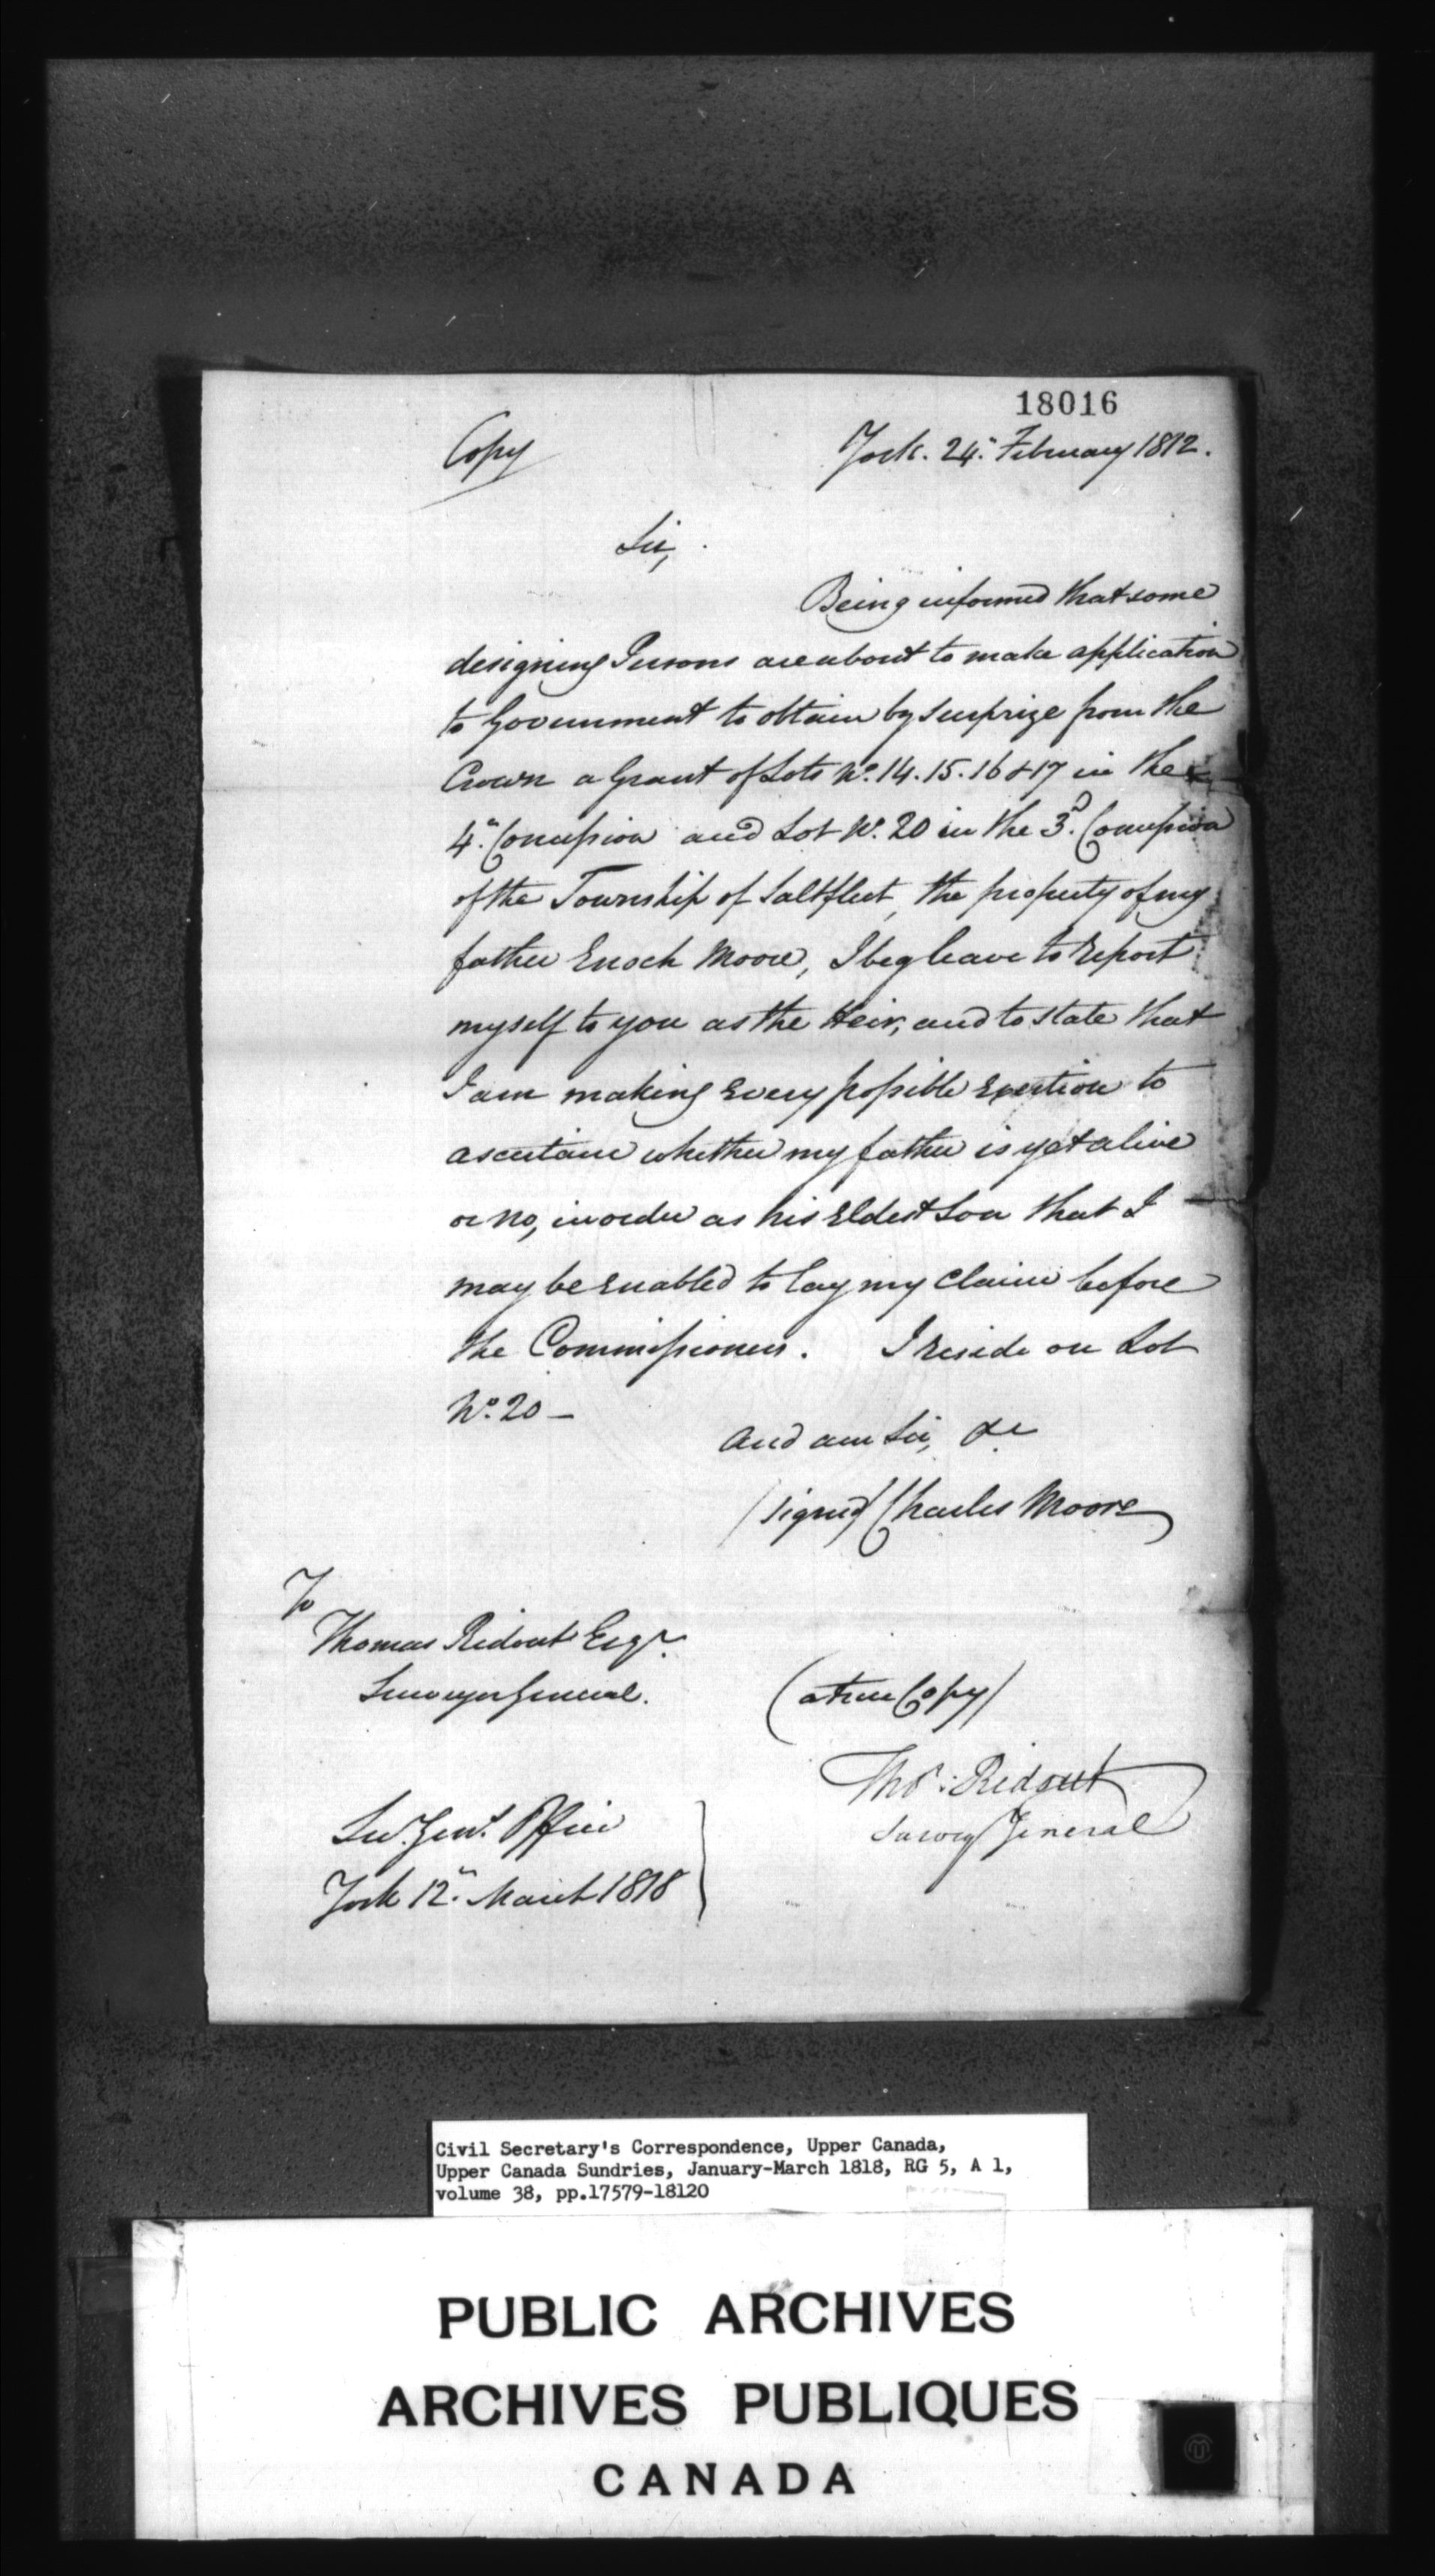 18016
Copy
York. 24th. February 1812.
Sir,
Being informed that some
designing Persons are about to make application
to Government to obtain by surprize from the
Crown a Grant of Lots No. 14. 15. 16 & 17 in the
4th. Concession and Lot No. 20 in the 3d. Concession
of the Township of Saltfleet, the property of my
father Enoch Moore, I beg leave to report
myself to you as the Heir, and to state that
I am making every possible exertion to
ascertain whether my father is yet alive
or no, in order as his Eldest Son that I
may be enabled to lay my claim before
the Commissioners. I reside on Lot
No. 20 —
and am Sir, &c
(signed) Charles Moore
To
Thomas Ridout Esqr.
Surveyor General.
(a true Copy)
Thos: Ridout
Survey General
Sur. Genl. Office
York 12th. March 1818
Civil Secretary's Correspondence, Upper Canada,
Upper Canada Sundries, January-March 1818, RG 5, A 1,
volume 38, pp.17579-18120
PUBLIC ARCHIVES
ARCHIVES PUBLIQUES
CANADA